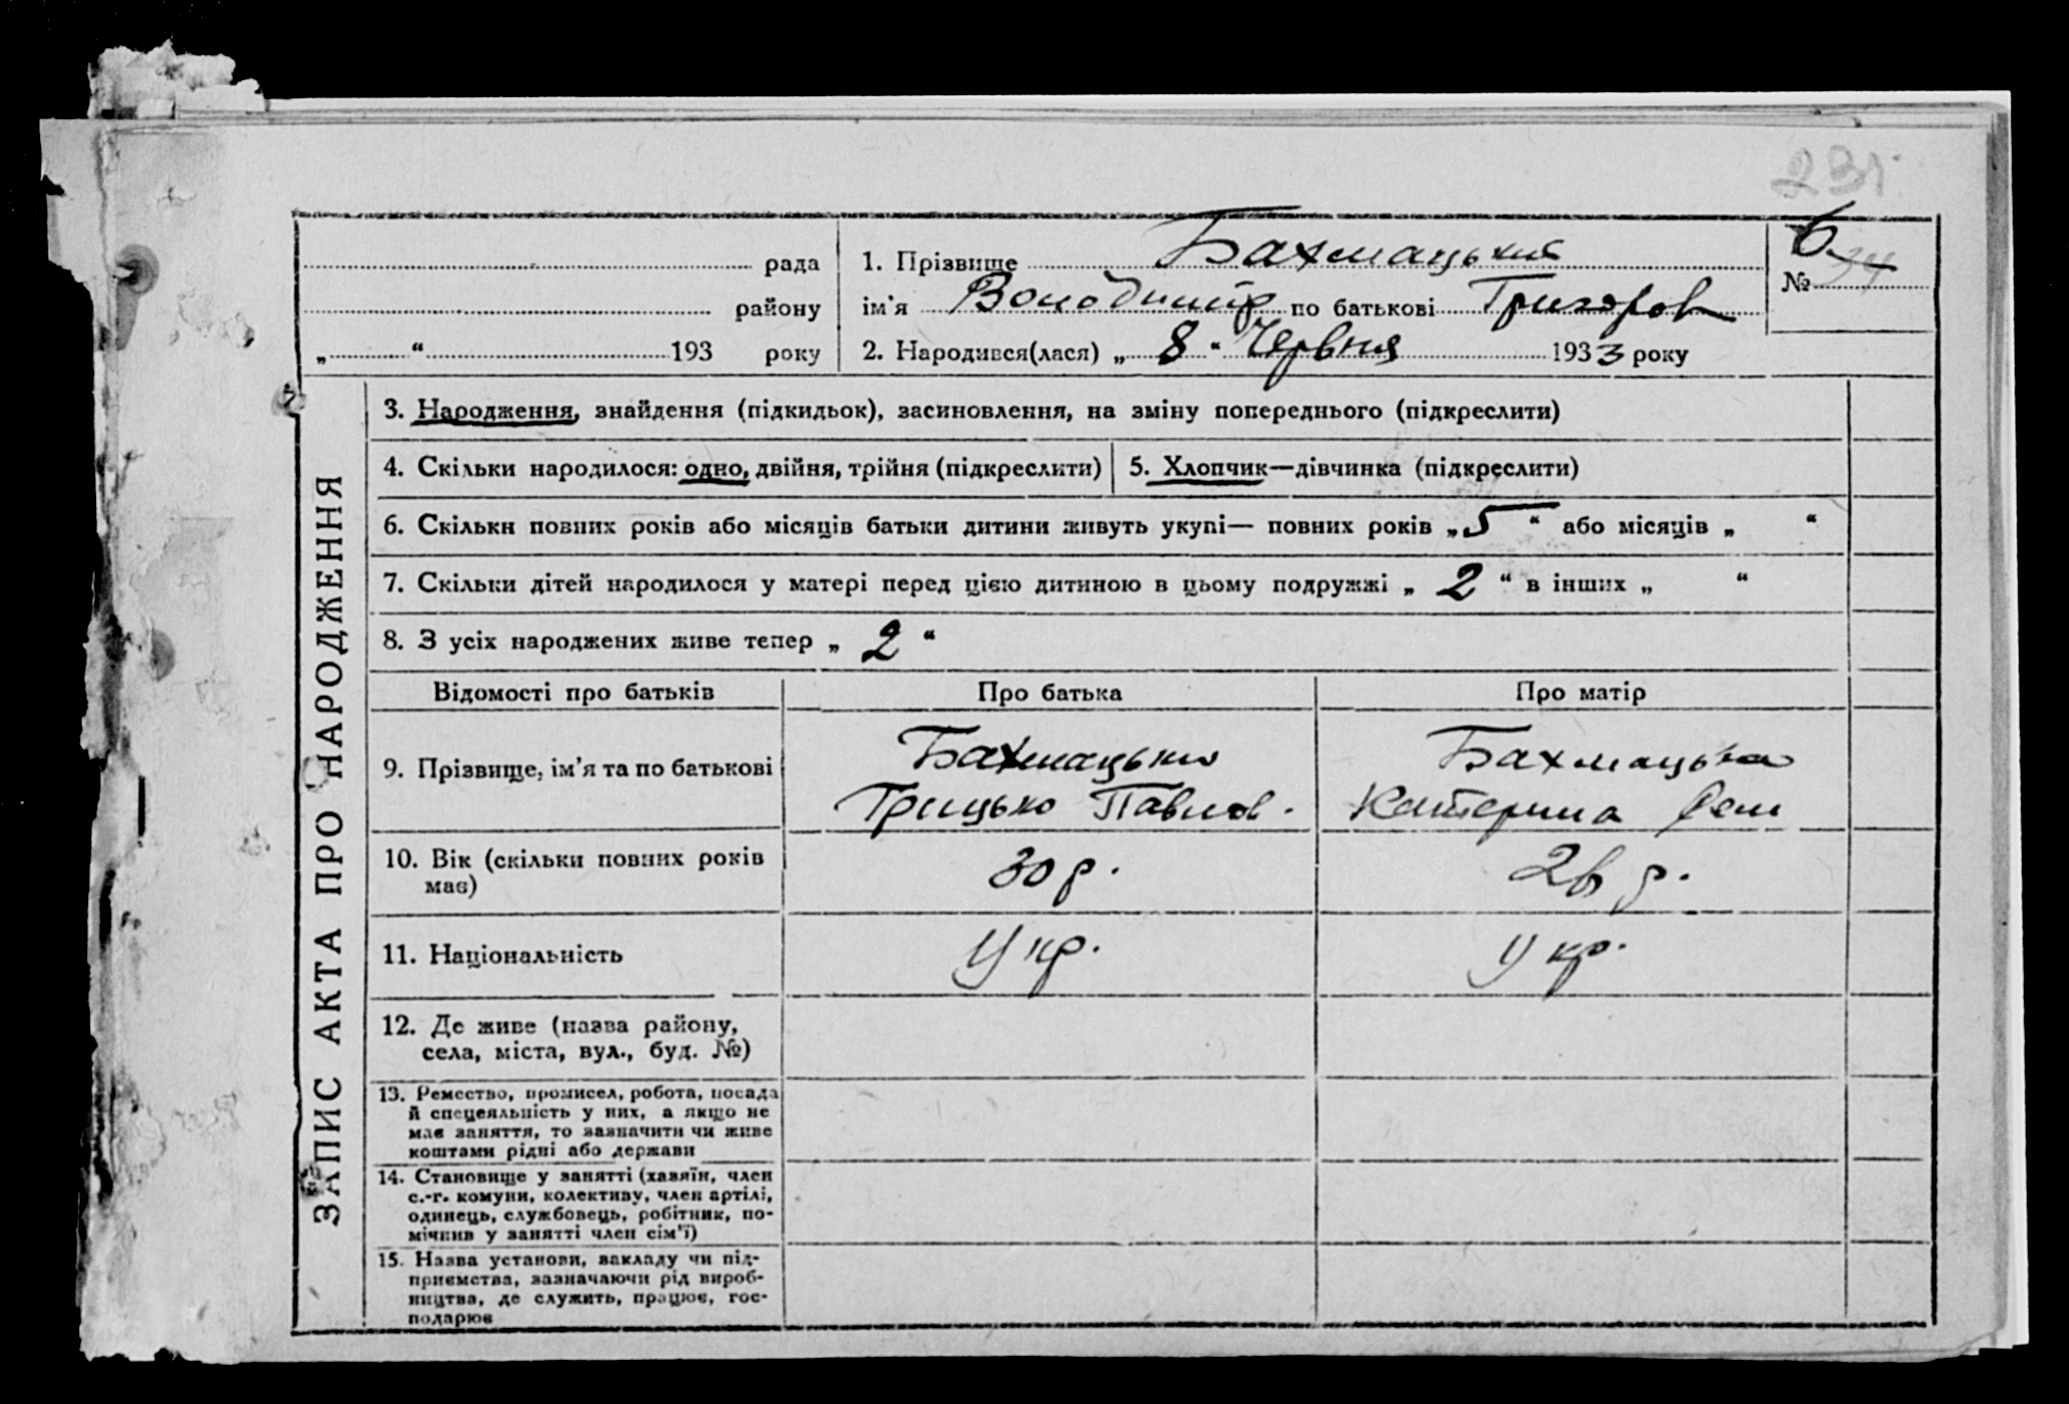 231
рада
району
„ “ 193 року
1. Прізвище Бахмацький
ім'я Володимир по батькові Григоров
2. Народився(лася) „ 8 “ Червня 1933 року
6
№ 34
ЗАПИС АКТА ПРО НАРОДЖЕННЯ
3. Народження, знайдення (підкидьок), засиновлення, на зміну попереднього (підкреслити)
4. Скільки народилося: одно, двійня, трійня (підкреслити)
5. Хлопчик—дівчинка (підкреслити)
6. Скільки повних років або місяців батьки дитини живуть укупі— повних років „ 5 “ або місяців „ “
7. Скільки дітей народилося у матері перед цією дитиною в цьому подружжі „ 2 “ в інших „ “
8. З усіх народжених живе тепер „ 2 “
Відомості про батьків
Про батька
Про матір
9. Прізвище, ім'я та по батькові
Бахмацький
Грицько Павлов.
Бахмацька
Катерина
10. Вік (скільки повних років
має)
30 р.
26 р.
11. Національність
Укр.
Укр.
12. Де живе (назва району,
села, міста, вул., буд. №)
13. Ремество, промисел, робота, посада
й спецеяльність у них, а якщо не
має заняття, то зазначити чи живе
коштами рідні або держави
14. Становище у занятті (хазяїн, член
с.-г. комуни, колективу, член артілі,
одинець, службовець, робітник, по-
мічнив у занятті член сім'ї)
15. Назва установи, закладу чи під-
приємства, зазначаючи рід вироб-
ництва, де служить, працює, гос-
подарює